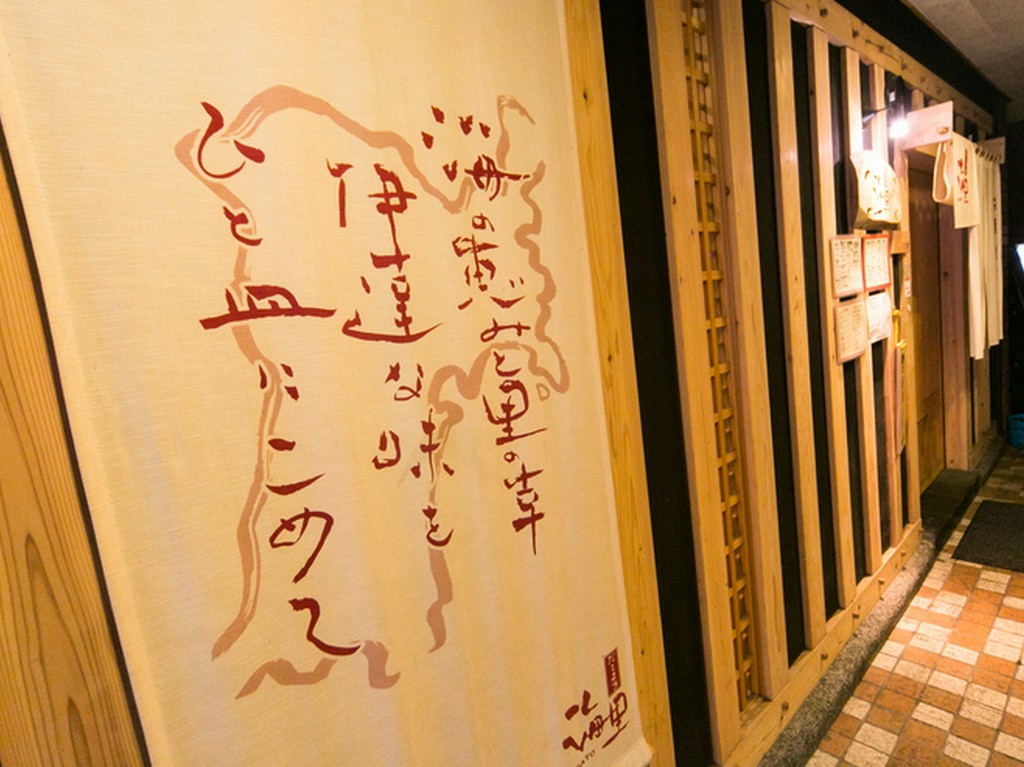 海の恵みと里の幸
伊達な味を
ひと皿にこめて
海里